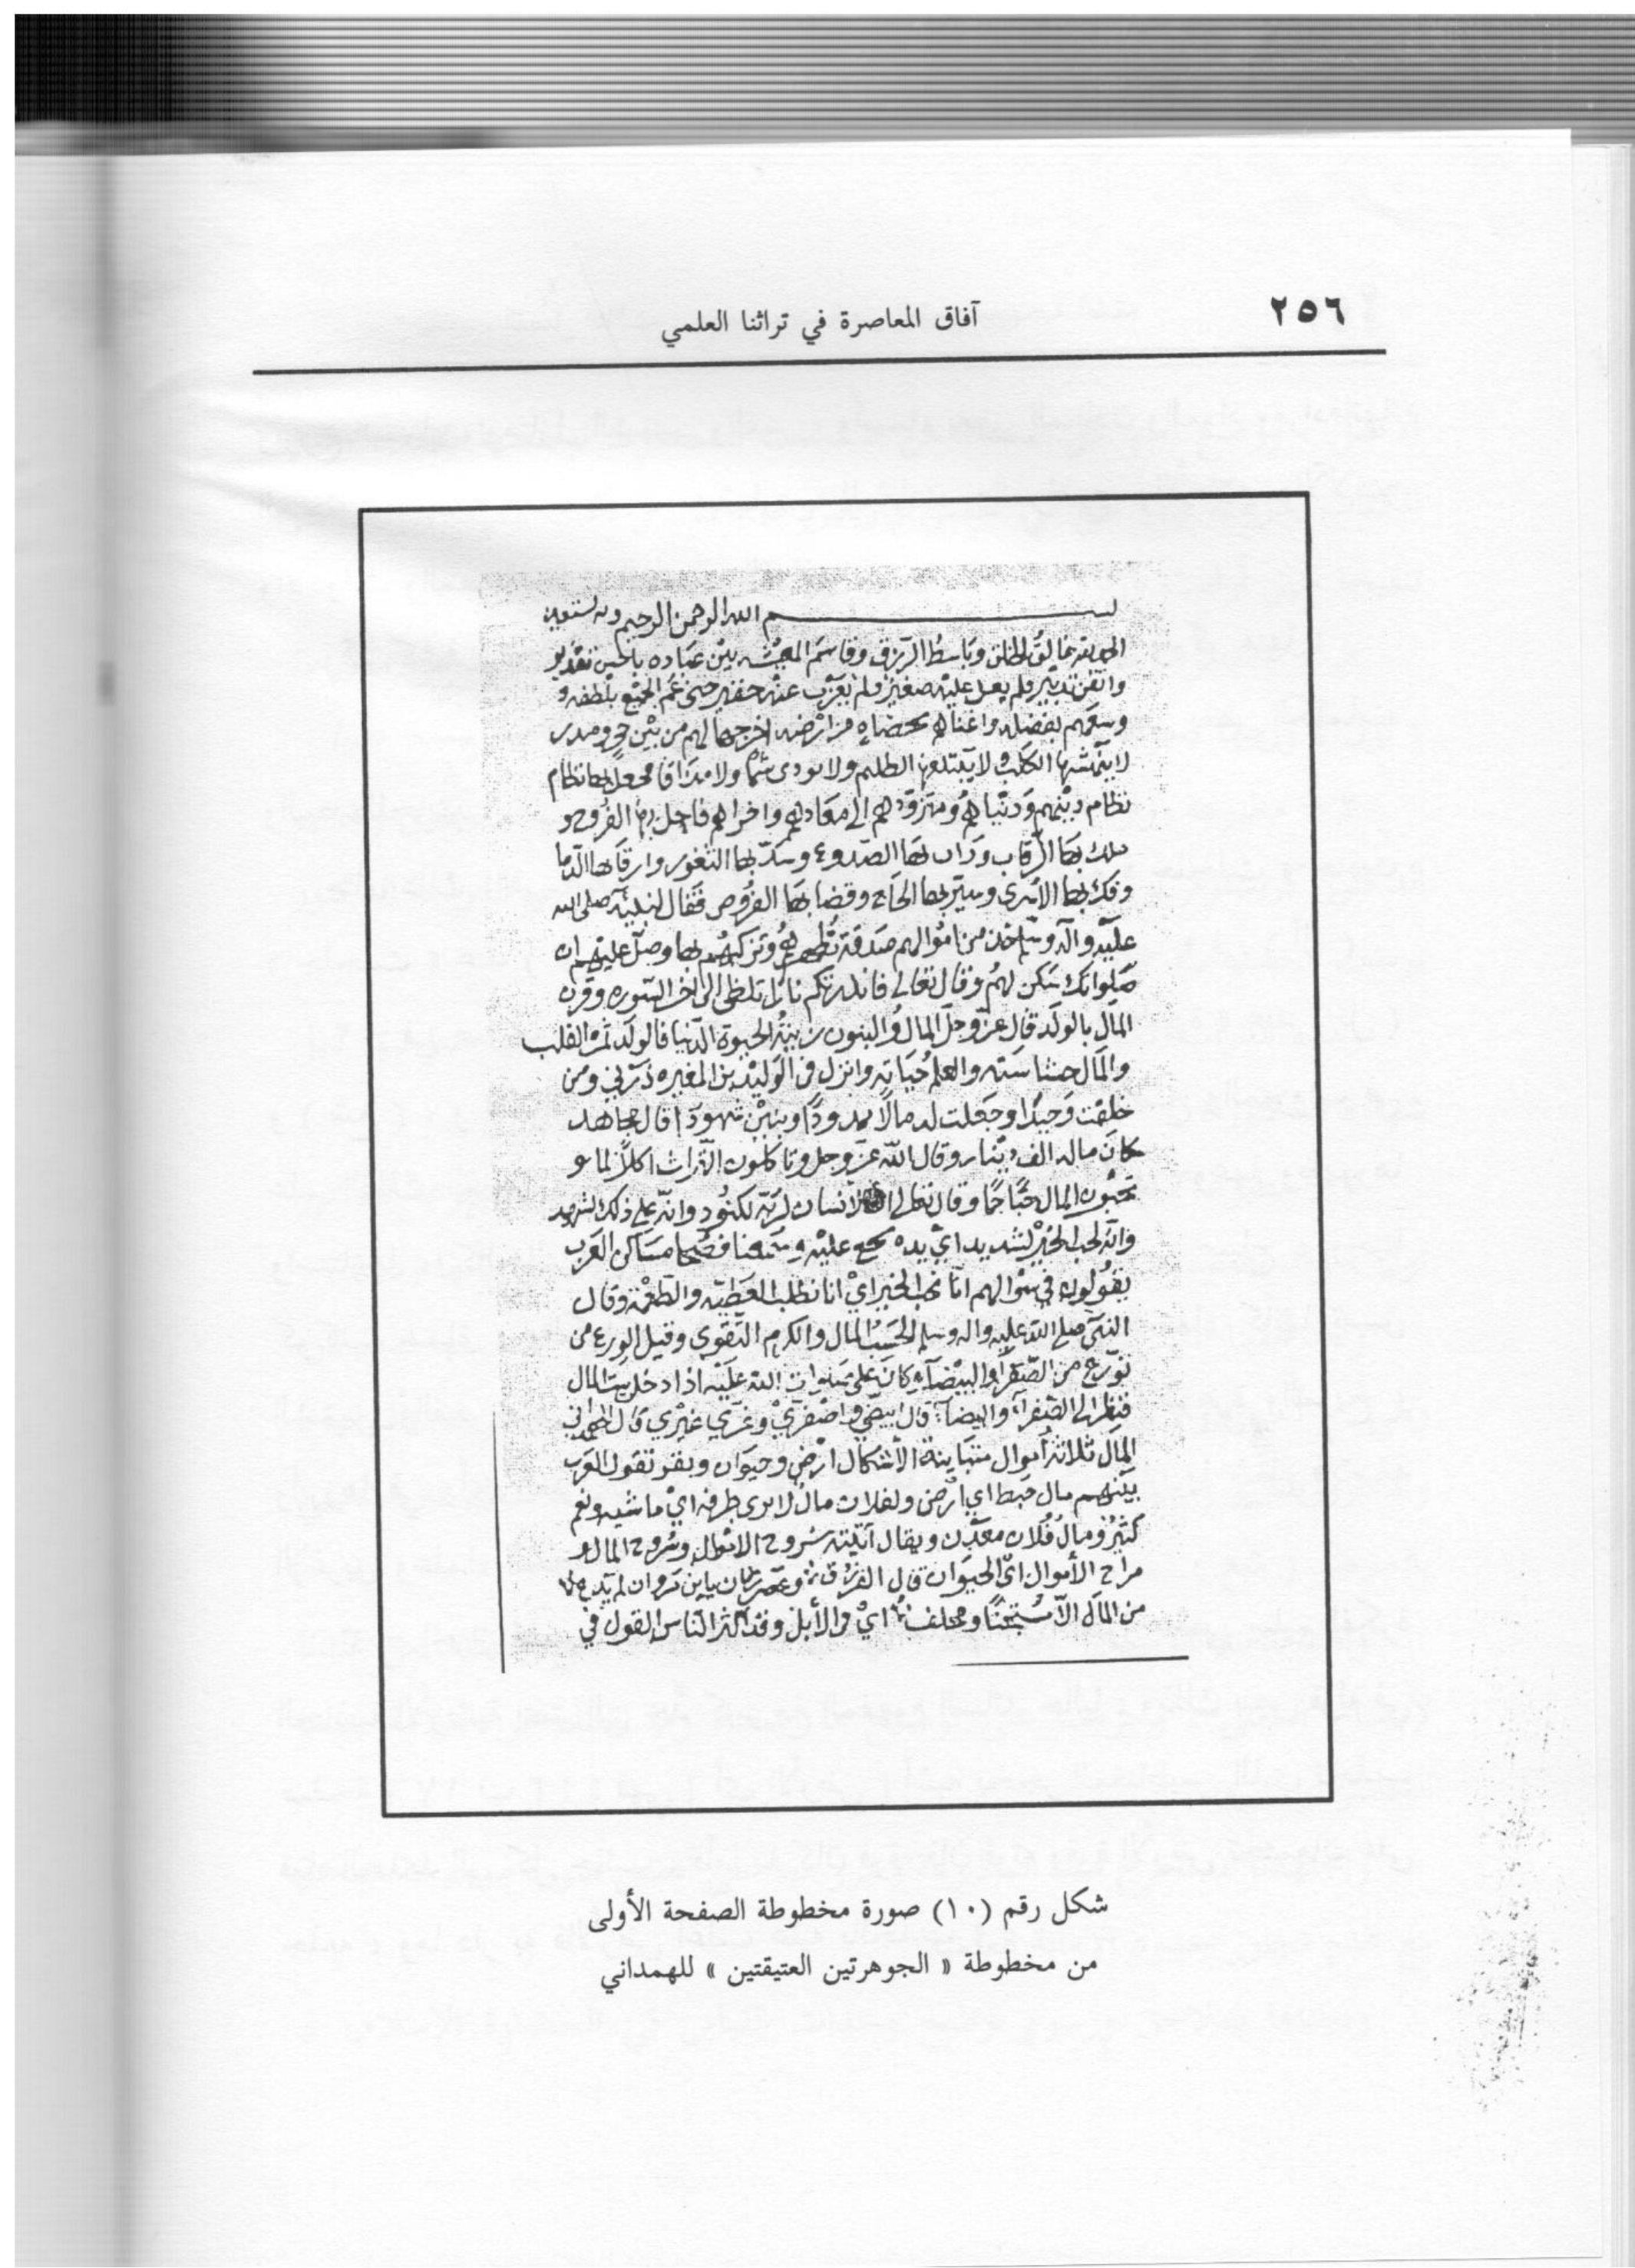 ٢٥٦
آفاق المعاصرة في تراثنا العلمي
بسم الله الرحمن الرحيم وبه نستعين
الحمد لله خالق الخلق وباسط الرزق وقاسم المعيشه بين عباده باحسن تقدير
واتقن تدبير فلم يعل عليه صغير ولم يعزب عنه حقير حتى عم الجميع بلطفه و
وسعهم بفضله واغناهم من ارضه اخرجها لهم من بين حجر ومدر
لا الكلب ولا يبتلعها الظليم ولا تودى شما ولا مذاقا فجعل بها نظام
نظام دينهم ودنياهم ومتزودهم الى معادهم واخراهم فاحل بها الفروج و
ملك بها الرقاب وراب بها الصدوع وسد بها الثغور وارقا بها الدما
وفك بها الاسرى وسير بها الحاج وقضا بها الفروض فقال لنبيه صلى الله
عليه وآله وسلم خذ من اموالهم صدقة تطهرهم وتزكيهم بها وصل عليهم ان
صلواتك سكن لهم وقال تعالى فانذرتكم نارا تلظى الى اخر السوره وقرن
المال بالولد قال عز وجل المال والبنون زينة الحيوة الدنيا فالولد ثمرة القلب
والمال والعلم حياته وانزل في الوليد بن المغيره ذرني ومن
خلقت وحيدا وجعلت له مالا ممدودا وبنين شهودا قال مجاهد
كان ماله الف دينار وقال الله عز وجل وتاكلون التراث اكلا لما و
تحبون المال حبا جما وقال تعالى ان الانسان لربه لكنود وانه على ذلك لشهيد
وانه لحب الخير لشديد اي يده عليه مساكن العرب
يقولون في سوالهم انا نحب الخير اي انا نطلب العطيه والطعمة وقال
النبي صلى الله عليه واله وسلم الحسب المال والكرم التقوى وقيل الورع من
تورع من الصفرا والبيضاء كان على صلوات الله عليه اذا دخل بيت المال
فنظر الى الصفراء والبيضاء قال ابيضي واصفري وغري غيري قال الهمداني
المال ثلاثة اموال متباينة الاشكال ارض وحيوان تقول العرب
بينهم مال اي ارض ولفلان مال لا يرى طرفه اي ماشيه ونعم
كثير ومال فلان معدن ويقال اتيته سروح الاموال وسروح المال و
مراح الأموال اي الحيوان قال الفرزدق وعض زمان يابن مروان لم يدع
من المال الا مسحتا او مجلف اي من الأبل وقد اكثر الناس القول في
شكل رقم (١٠) صورة مخطوطة الصفحة الأولى
من مخطوطة « الجوهرتين العتيقتين » للهمداني